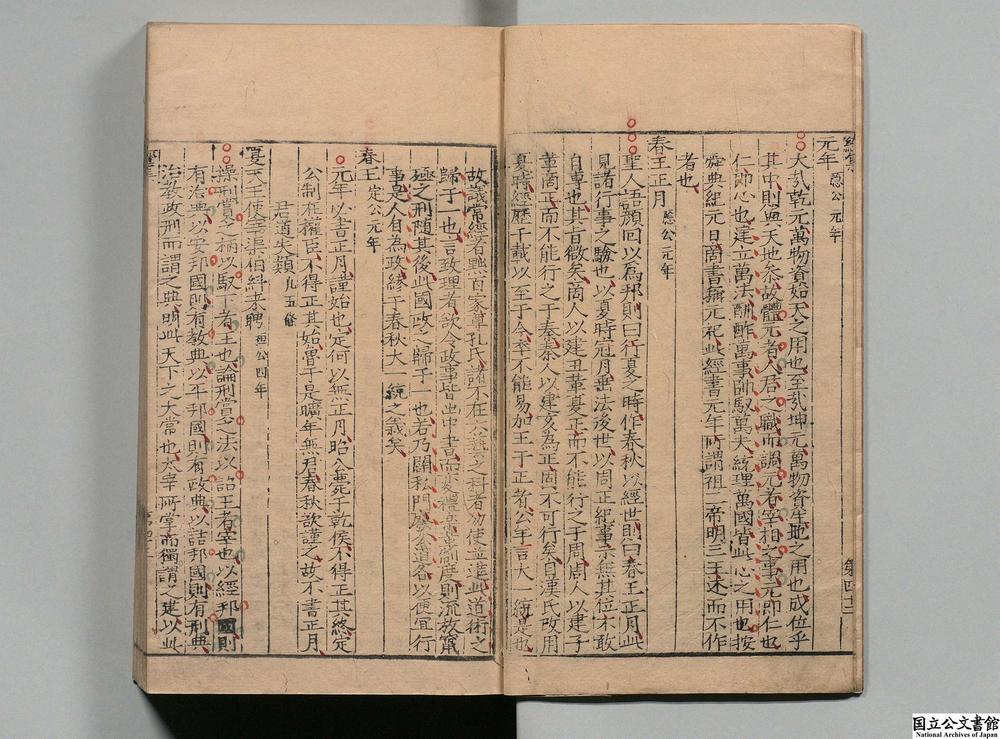 元年 隱公元年
大哉乾元萬物資始天之用也至哉坤元萬物資生地之用也成位乎
其中則與天地參故體元者人君之職而調元者宰相之事元即仁也
仁即心也建立萬法酬酢萬事帥馭萬夫統理萬國皆此心之用也按
舜典紀元日商書稱元祀此經書元年所謂祖二帝明三王述而不作
者也
春王正月 隱公元年
聖人語顏回以為邦則曰行夏之時作春秋以經世則曰春王正月此
見諸行事之驗也以夏時冠月垂法後世以周正紀事示無其位不敢
自專也其旨微矣商人以建丑革夏正而不能行之于周周人以建子
革商正而不能行之于秦秦人以建亥為正固不可行矣自漢氏改用
夏時經歷千載以至于今卒不能易加王于正者公羊言大一統是也
第四十二
故議常經者黜百家尊孔氏諸不在六藝之科者勿使並進此道術之
歸于一也言致理者欲令政事皆出中書而變禮樂革制度則流放竄
殛之刑隨其後此國政之歸于一也若乃闢私門廢公道各以便宜行
事是人自為政繆于春秋大一統之義矣
春王 定公元年
元年必書正月謹始也定何以無正月昭公薨于乾侯不得正其終定
公制在權臣不得正其始魯于是曠年無君春秋欲謹之故不書正月
君道失類 九五條
夏天王使宰渠伯糾來聘 桓公四年
操刑賞之柄以馭下者王也論刑賞之法以詔王者宰也以經邦國則
有治典以安邦國則有教典以平邦國則有政典以詰邦國則有刑典
治教政刑而謂之典明此天下之大常也太宰所掌而獨謂之建以此
国立公文書館
National Archives of Japan